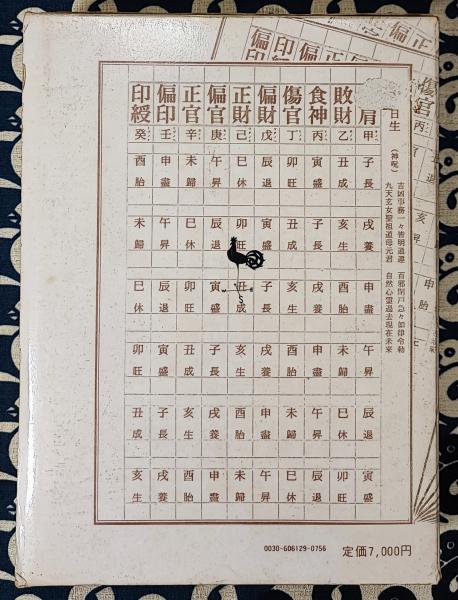 日生
（神呪）
吉凶事務一々皆明道達　百邪閉戸急々如律令勅
九天玄女聖祖道母元君　自然心靈過去現在未来
肩 甲 子長 戌養 申盡 午昇 辰退 寅盛
敗財 乙 丑成 亥生 酉胎 未歸 巳休 卯旺
食神 丙 寅盛 子長 戌養 申盡 午昇 辰退
傷官 丁 卯旺 丑成 亥生 酉胎 未歸 巳休
偏財 戊 辰退 寅盛 子長 戌養 申盡 午昇
正財 己 巳休 卯旺 丑成 亥生 酉胎 未歸
偏官 庚 午昇 辰退 寅盛 子長 戌養 申盡
正官 辛 未歸 巳休 卯旺 丑成 亥生 酉胎
偏印 壬 申盡 午昇 辰退 寅盛 子長 戌養
印綬 癸 酉胎 未歸 巳休 卯旺 丑成 亥生
S
0030-606129-0756
定価7,000円